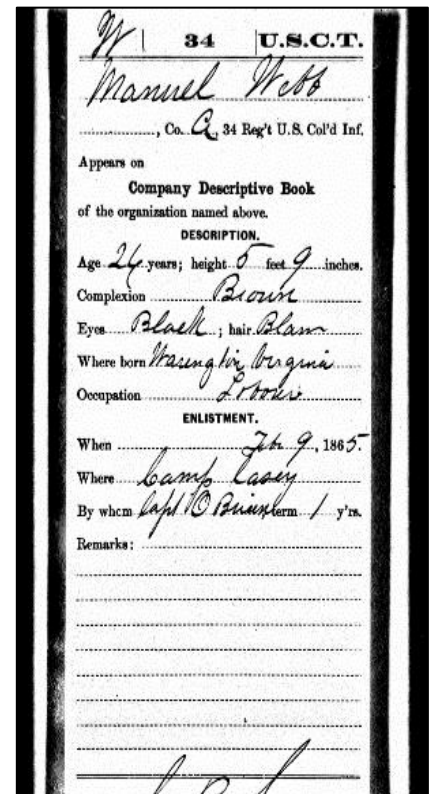 W | 34 | U.S.C.T.
Manuel Webb
, Co. A, 34 Reg't U.S. Col'd Inf.
Appears on
Company Descriptive Book
of the organization named above.
DESCRIPTION.
Age years; height 5 feet 9 inches.
Complexion Brown
Eyes Black ; hair
Where born Virginia
Occupation
ENLISTMENT.
When Feb 9, 1865.
Where Camp Casey
By whom Capt O Brien, term 1 y'rs.
Remarks: